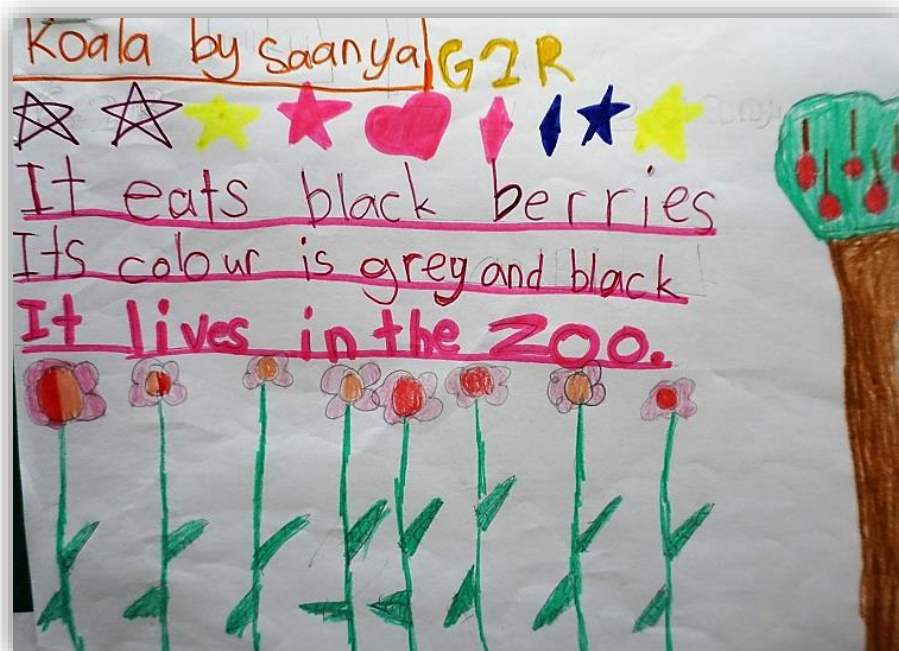 Koala by Saanya G2R
It eats black berries
Its colour is grey and black
It lives in the zoo.